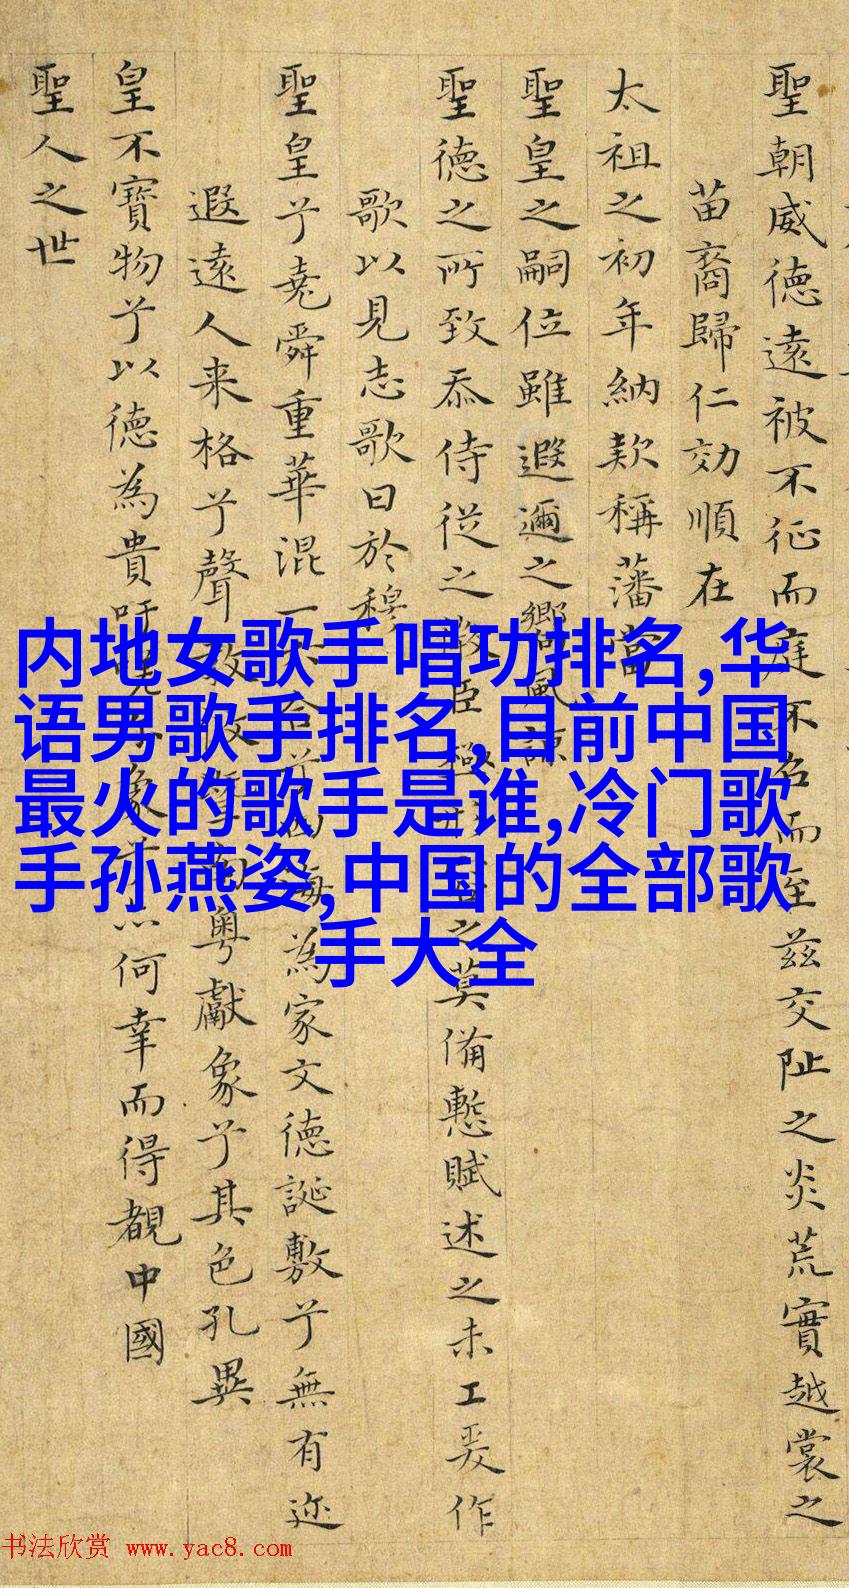 聖朝威德遠被不征而庭不名而至茲交阯之炎荒實越裳之
苗裔歸仁効順在
太祖之初年納款稱藩當
聖皇之嗣位雖遐邇之鄉風諒
聖德之所致忝侍從之微臣極之莫備慙賦述之未工爰作
歌以見志歌曰於穆
聖皇兮堯舜重華混一四海為家文德誕敷兮無有迩
遐遠人来格兮聲教粤獻象兮其色孔異
皇不寶物兮以德為貴吁象何幸而得覩中國
聖人之世
内地女歌手唱功排名,华
语男歌手排名,目前中国
最火的歌手是谁,冷门歌
手孙燕姿,中国的全部歌
手大全
书法欣赏 www.yac8.com